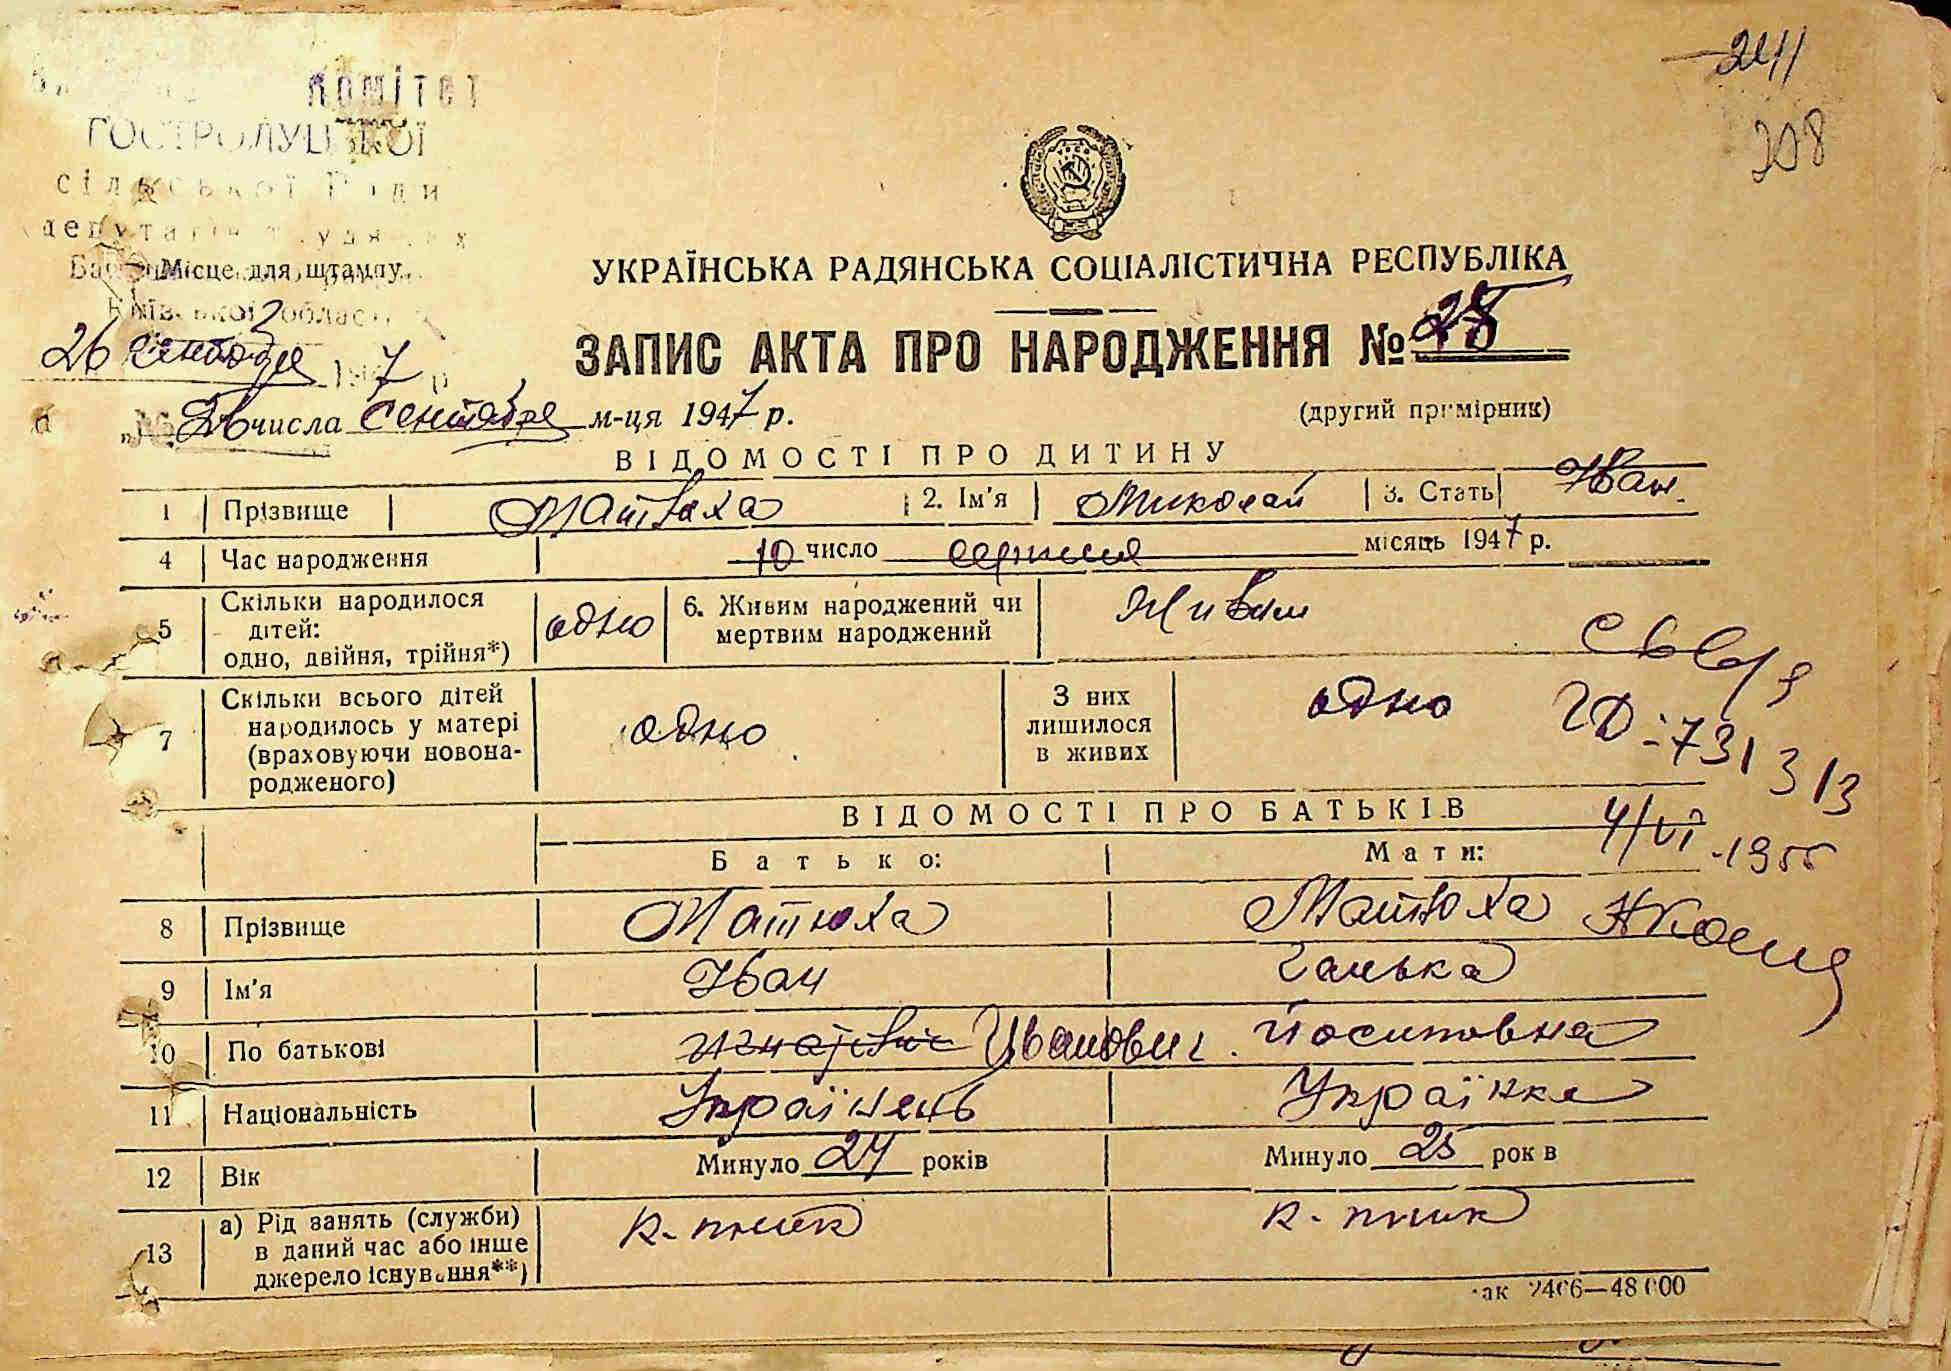 241
208
комітет
ГОСТРОЛУЦЬКОЇ
сільської Ради
депутатів трудящих
Місце для штампу
Київської області
26 сентября 1947 р
УКРАЇНСЬКА РАДЯНСЬКА СОЦІАЛІСТИЧНА РЕСПУБЛІКА
ЗАПИС АКТА ПРО НАРОДЖЕННЯ № 28
"26" числа сентября м-ця 1947 р.
(другий примірник)
ВІДОМОСТІ ПРО ДИТИНУ
1 Прізвище Матюха 2. Ім'я Миколай 3. Стать Иван.
4 Час народження 10 число серпня місяць 1947 р.
5 Скільки народилося дітей: одно, двійня, трійня*) одно 6. Живим народжений чи мертвим народжений Живим
7 Скільки всього дітей народилось у матері (враховуючи новонародженого) одно З них лишилося в живих одно
ГД-731313
4/VI-1955
ВІДОМОСТІ ПРО БАТЬКІВ
Батько: Мати:
8 Прізвище Матюха Матюха
9 Ім'я Иван Ганька
10 По батькові Игнатович Иванович. Йосиповна
11 Національність Українець Українка
12 Вік Минуло 24 років Минуло 25 років
13 а) Рід занять (служби) в даний час або інше джерело існування**) к-пник к-пник
Зак 2466—48 000